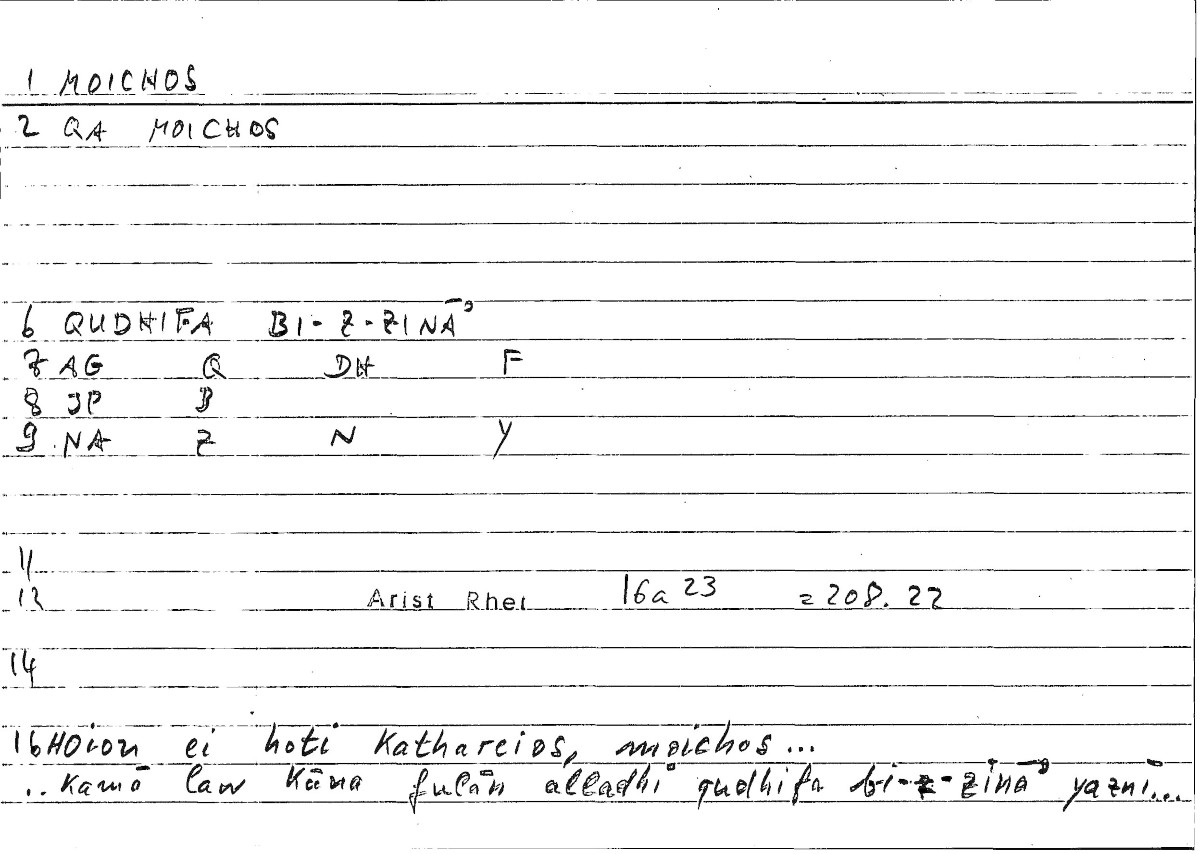 1 MOICHOS
2 QA MOICHOS
6 QUDHIFA BI-Z-ZINĀʾ
7 AG Q DH F
8 JP B
9 NA Z N Y
11
12 Arist Rhet 16a 23 = 208.22
14
16 HOion ei hoti Kathareios, moichos...
..Kamā law Kāna fulān alladhī qudhifa bi-z-zināʾ yaznī...